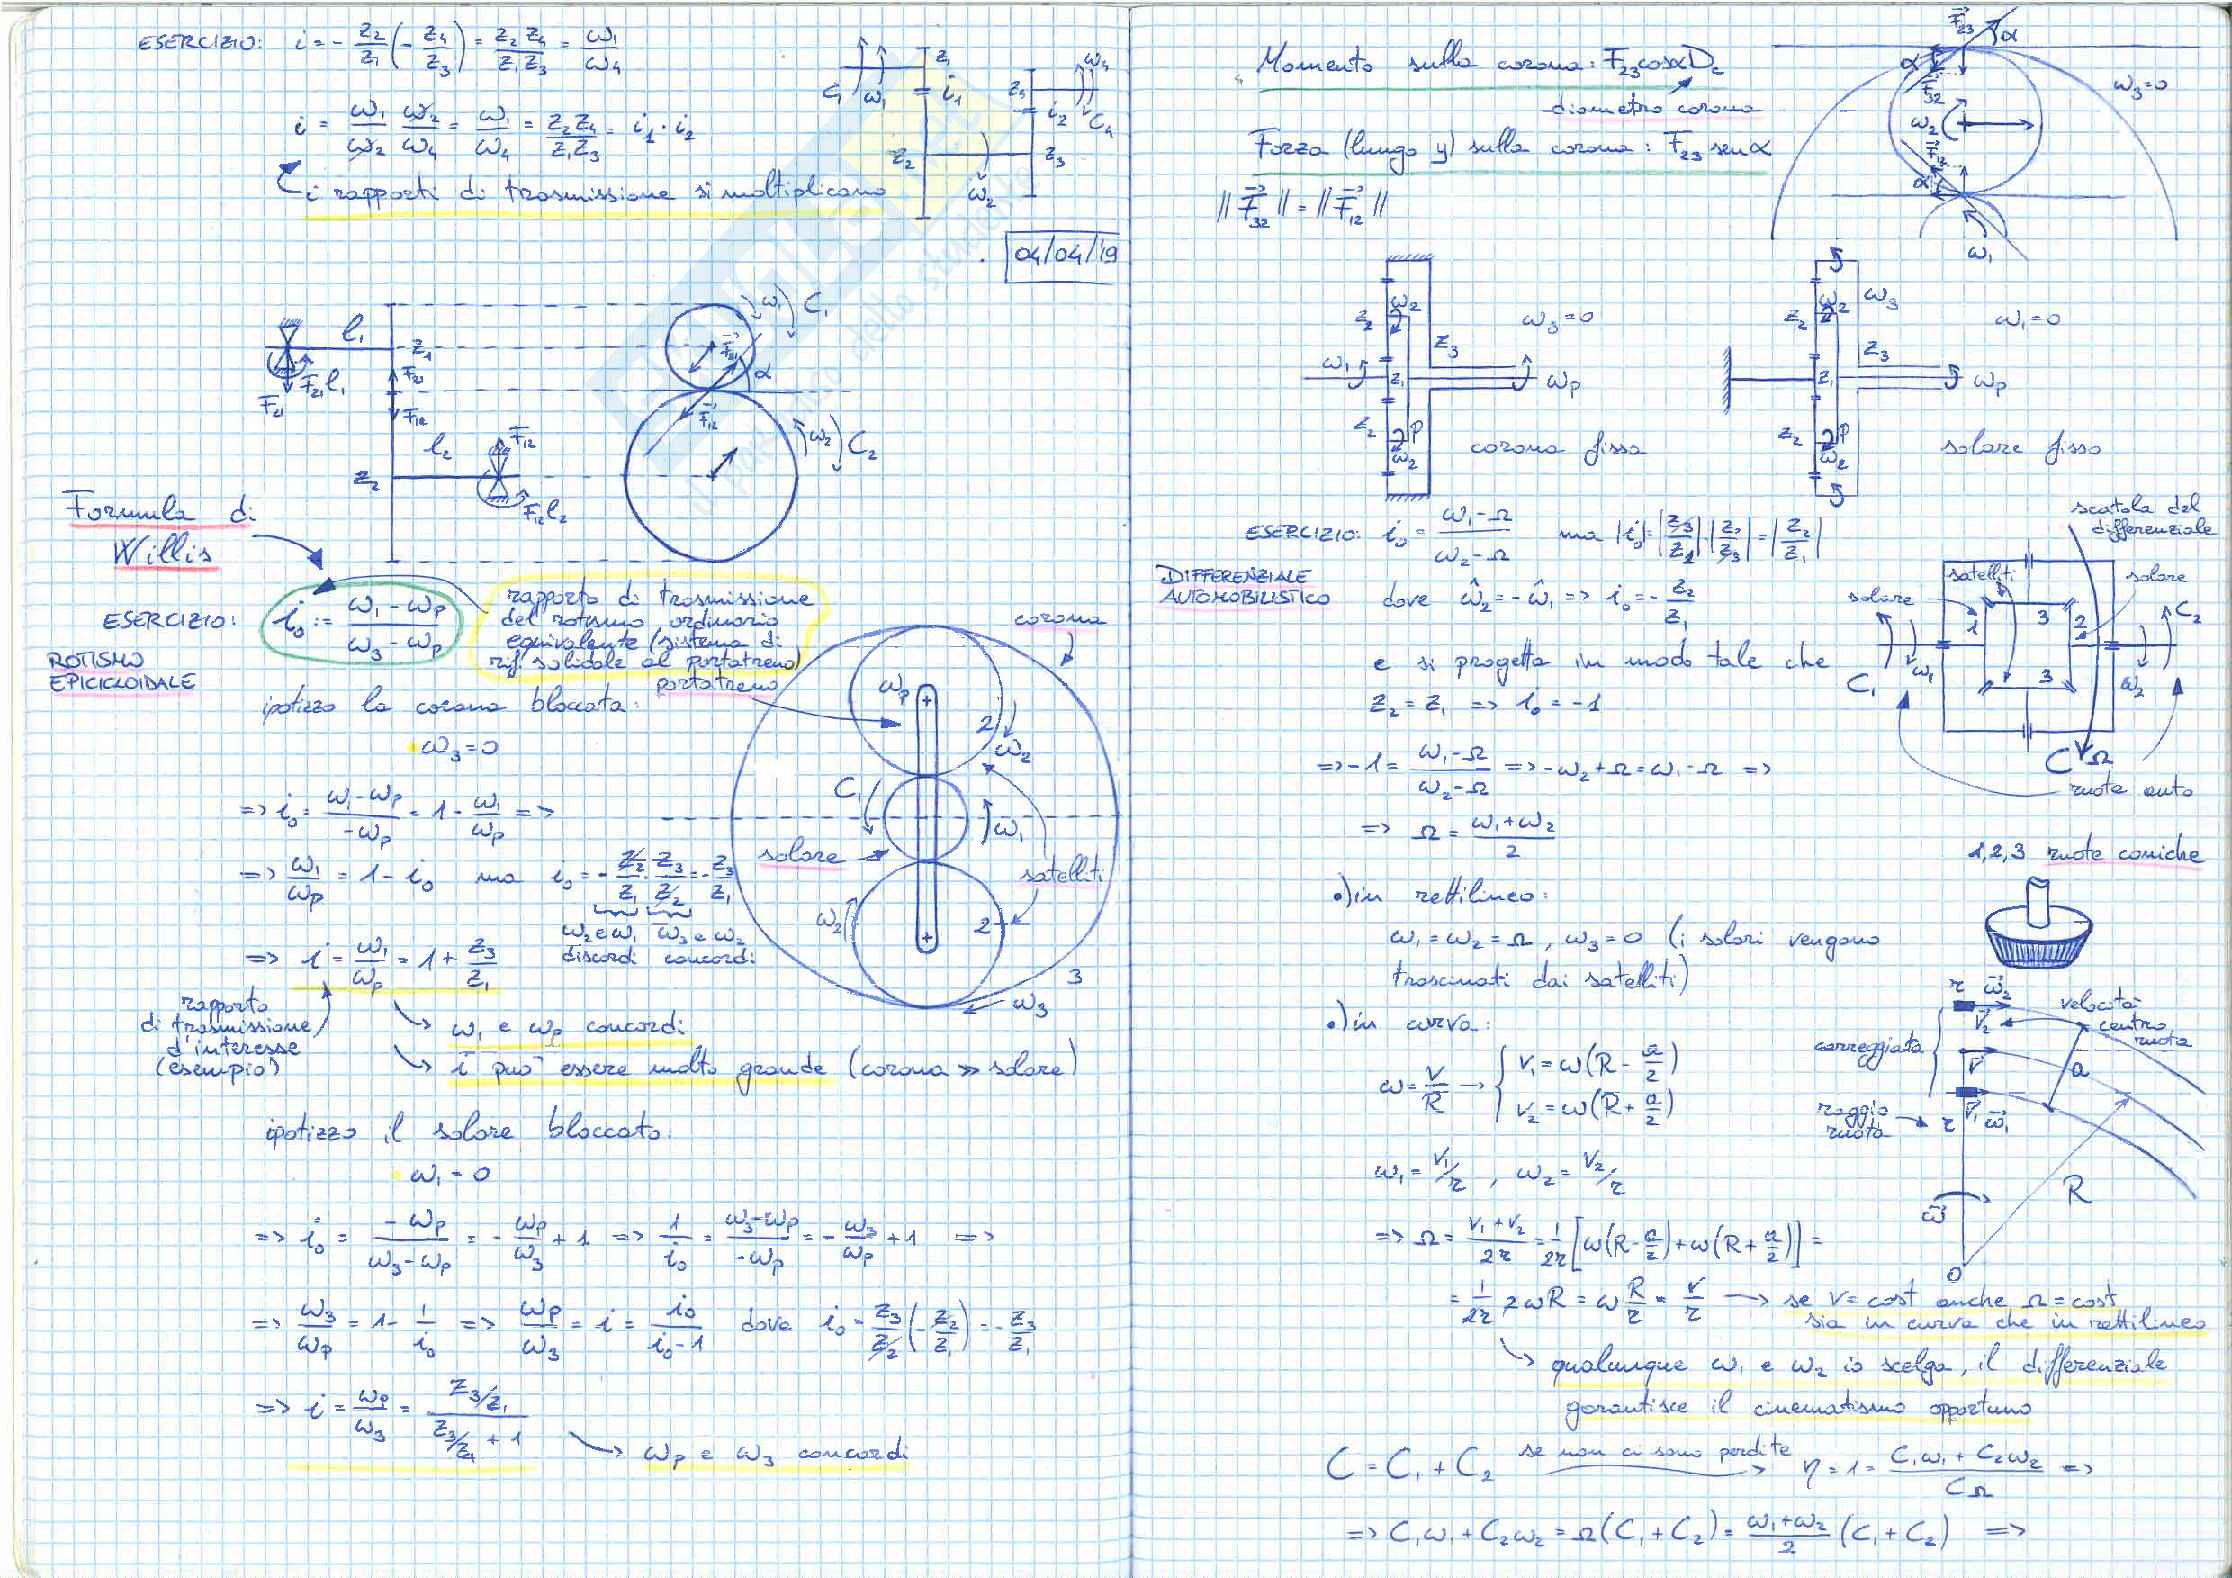 ESERCIZIO: i = - Z₂/Z₁ (- Z₄/Z₃) = Z₂ Z₄ / Z₁ Z₃ = ω₁/ω₄
i = ω₁/ω₂ ω₂/ω₄ = ω₁/ω₄ = Z₂Z₄/Z₁Z₃ = i₁ · i₂
i rapporti di trasmissione si moltiplicano
C₁ ω₁ Z₁ i₁ Z₂ ω₂ Z₃ i₂ Z₄ ω₄ C₄
04/04/19
l₁ Z₁ F₂₁ F₂₁l₁ F₂₁ F₁₂
l₂ Z₂ F₁₂ F₁₂l₂
ω₁ C₁ F₂₁ α F₁₂ ω₂ C₂
Formula di
Willis
ESERCIZIO: i₀ := (ω₁ - ωp)/(ω₃ - ωp)
ROTISMO
EPICICLOIDALE
rapporto di trasmissione
del rotismo ordinario
equivalente (sistema di
rif. solidale al portatreno)
portatreno
corona
ipotizzo la corona bloccata:
ω₃ = 0
=> i₀ = (ω₁ - ωp)/(-ωp) = 1 - ω₁/ωp =>
=> ω₁/ωp = 1 - i₀ ma i₀ = - Z₂/Z₁ · Z₃/Z₂ = - Z₃/Z₁
ω₂ e ω₁ ω₃ e ω₂
discordi concordi
=> i = ω₁/ωp = 1 + Z₃/Z₁
rapporto
di trasmissione
d'interesse
(esempio)
ω₁ e ωp concordi
i può essere molto grande (corona >> solare)
ωp 2 ω₂ C₁ ω₁
solare
satelliti
ω₂ 2 3 ω₃
ipotizzo il solare bloccato:
ω₁ = 0
=> i₀ = -ωp/(ω₃ - ωp) = - ωp/ω₃ + 1 => 1/i₀ = (ω₃ - ωp)/(-ωp) = - ω₃/ωp + 1 =>
=> ω₃/ωp = 1 - 1/i₀ => ωp/ω₃ = i = i₀/(i₀ - 1) dove i₀ = Z₃/Z₂ (- Z₂/Z₁) = - Z₃/Z₁
=> i = ωp/ω₃ = (Z₃/Z₁)/(Z₃/Z₁ + 1)
ωp e ω₃ concordi
Momento sulla corona: F₂₃cosαD_c
diametro corona
Forza (lungo y) sulla corona: F₂₃ senα
||F₃₂|| = ||F₁₂||
F₂₃ α α F₃₂ ω₃=0 ω₂ F₁₂ α ω₁
Z₂ ω₂ ω₃=0 Z₃ ω₁ Z₁ ωp Z₂ P ω₂
corona fissa
Z₂ ω₂ ω₃ ω₁=0 Z₃ Z₁ ωp Z₂ P ω₂
solare fisso
ESERCIZIO: i₀ = (ω₁ - Ω)/(ω₂ - Ω) ma |i₀| = |Z₃/Z₁| · |Z₂/Z₃| = |Z₂/Z₁|
DIFFERENZIALE
AUTOMOBILISTICO
dove ω̂₂ = - ω̂₁ => i₀ = - Z₂/Z₁
e si progetta in modo tale che
Z₂ = Z₁ => i₀ = -1
=> -1 = (ω₁ - Ω)/(ω₂ - Ω) => -ω₂ + Ω = ω₁ - Ω =>
=> Ω = (ω₁ + ω₂)/2
scatola del
differenziale
satelliti
solare
solare
1 3 2 3
C₁ ω₁ ω₂ C₂
C Ω
ruote auto
1,2,3 ruote coniche
•) in rettilineo:
ω₁ = ω₂ = Ω, ω₃ = 0 (i solari vengono
trascinati dai satelliti)
•) in curva:
ω = V/R → { V₁ = ω(R - a/2)
V₂ = ω(R + a/2)
ω₁ = V₁/r, ω₂ = V₂/r
r ω₂
V₂
velocità
centro
ruota
carreggiata
V a
raggio
ruota
r V₁ ω₁
R
ω
O
=> Ω = (V₁ + V₂)/2r = 1/2r [ω(R - a/2) + ω(R + a/2)] =
= 1/2r 2ωR = ω R/r = V/r → se V = cost anche Ω = cost
sia in curva che in rettilineo
qualunque ω₁ e ω₂ io scelga, il differenziale
garantisce il cinematismo opportuno
C = C₁ + C₂ se non ci sono perdite η = 1 = (C₁ω₁ + C₂ω₂)/CΩ =>
=> C₁ω₁ + C₂ω₂ = Ω(C₁ + C₂) = (ω₁+ω₂)/2 (C₁ + C₂) =>